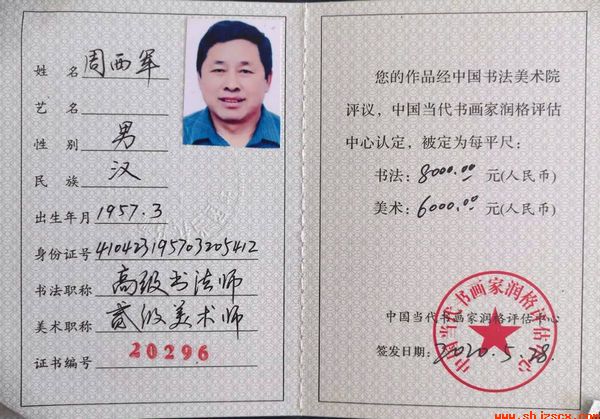 姓名 周西军
艺名
性别 男
民族 汉
出生年月 1957.3
身份证号 410423195703205412
书法职称 高级书法师
美术职称 贰级美术师
证书编号 20296
您的作品经中国书法美术院
评议，中国当代书画家润格评估
中心认定，被定为每平尺：
书法：8000.00 元(人民币)
美术：6000.00 元(人民币)
中国当代书画家润格评估中心
签发日期：2020.5.28.
中国当代书画家润格评估中心
www.shjzscx.com